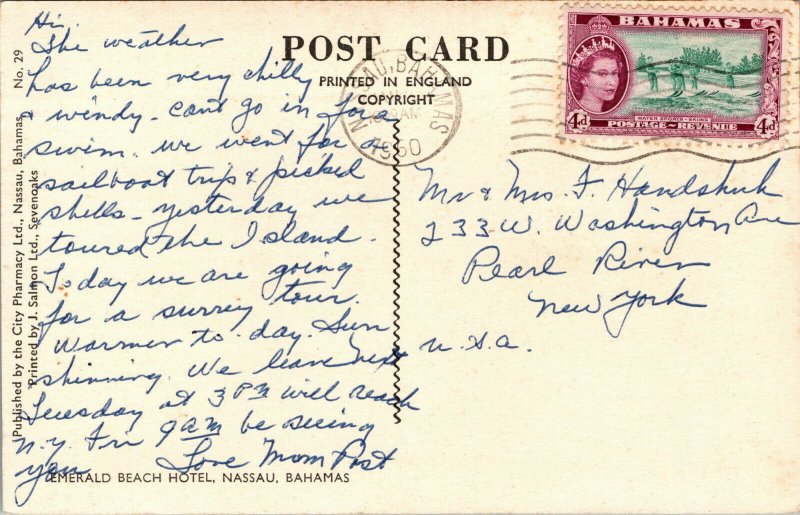 Hi,
The weather
has been very chilly
& windy. Cant go in for a
swim. we went for a
sailboat trip & picked
shells - yesterday we
toured the Island.
Today we are going
for a surrey tour.
Warmer to-day. Sun
shinning. We leave next
Tuesday at 3 PM will reach
N.Y. Fri 9 am be seeing
you Love Mom Post
EMERALD BEACH HOTEL, NASSAU, BAHAMAS
Published by the City Pharmacy Ltd., Nassau, Bahamas No. 29
Printed by J. Salmon Ltd., Sevenoaks
POST CARD
PRINTED IN ENGLAND
COPYRIGHT
NASSAU, BAHAMAS
AM
1960
BAHAMAS
4d 4d
WATER SPORTS - SKIING
POSTAGE - REVENUE
Mr & Mrs. F. Handshuh
233 W. Washington Ave
Pearl River
New York
U.S.A.